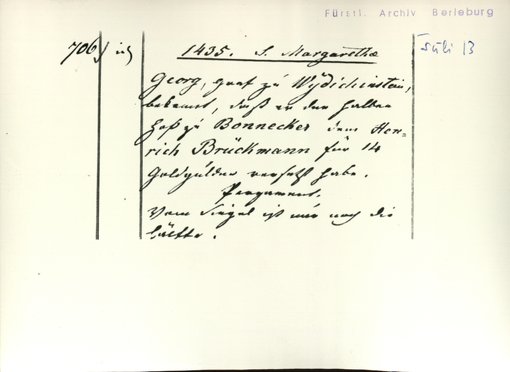 Fürstl. Archiv Berleburg
706
1435. S. Margaretha
Juli 13
Georg, Graf zu Wydichinstein,
bekennt, daß er den halben
Hof zu Bonnecker dem Hen=
rich Brückmann für 14
Goldgulden versetzt habe.
Pergament.
Vom Siegel ist nur noch die
Hälfte.